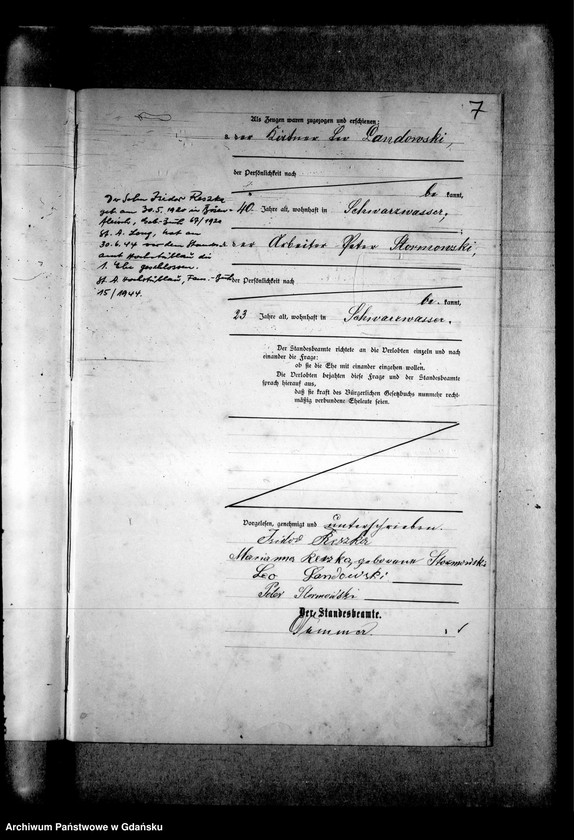 7
Als Zeugen waren zugezogen und erschienen:
der Leo Landowski,
der Persönlichkeit nach
be kannt,
40 Jahre alt, wohnhaft in Schwarzwasser,
der Arbeiter Peter Stormowski,
der Persönlichkeit nach
be kannt,
23 Jahre alt, wohnhaft in Schwarzwasser.
Der Sohn Isidor Reszka
geb. am 30.5.1920 in
67/1920
St. A. Long, hat am
30.6.44 vor dem Standes-
amt Hochstüblau die
1. Ehe geschlossen.
St. A. Hochstüblau, Fam.-Buch
15/1944.
Der Standesbeamte richtete an die Verlobten einzeln und nach
einander die Frage:
ob sie die Ehe mit einander eingehen wollen.
Die Verlobten bejahten diese Frage und der Standesbeamte
sprach hierauf aus,
daß sie kraft des Bürgerlichen Gesetzbuchs nunmehr recht-
mäßig verbundene Eheleute seien.
Vorgelesen, genehmigt und unterschrieben.
Isidor Reszka
Marianna Reszka, geborene Stormowski
Leo Landowski
Peter Stormoński
Der Standesbeamte.
Archiwum Państwowe w Gdańsku